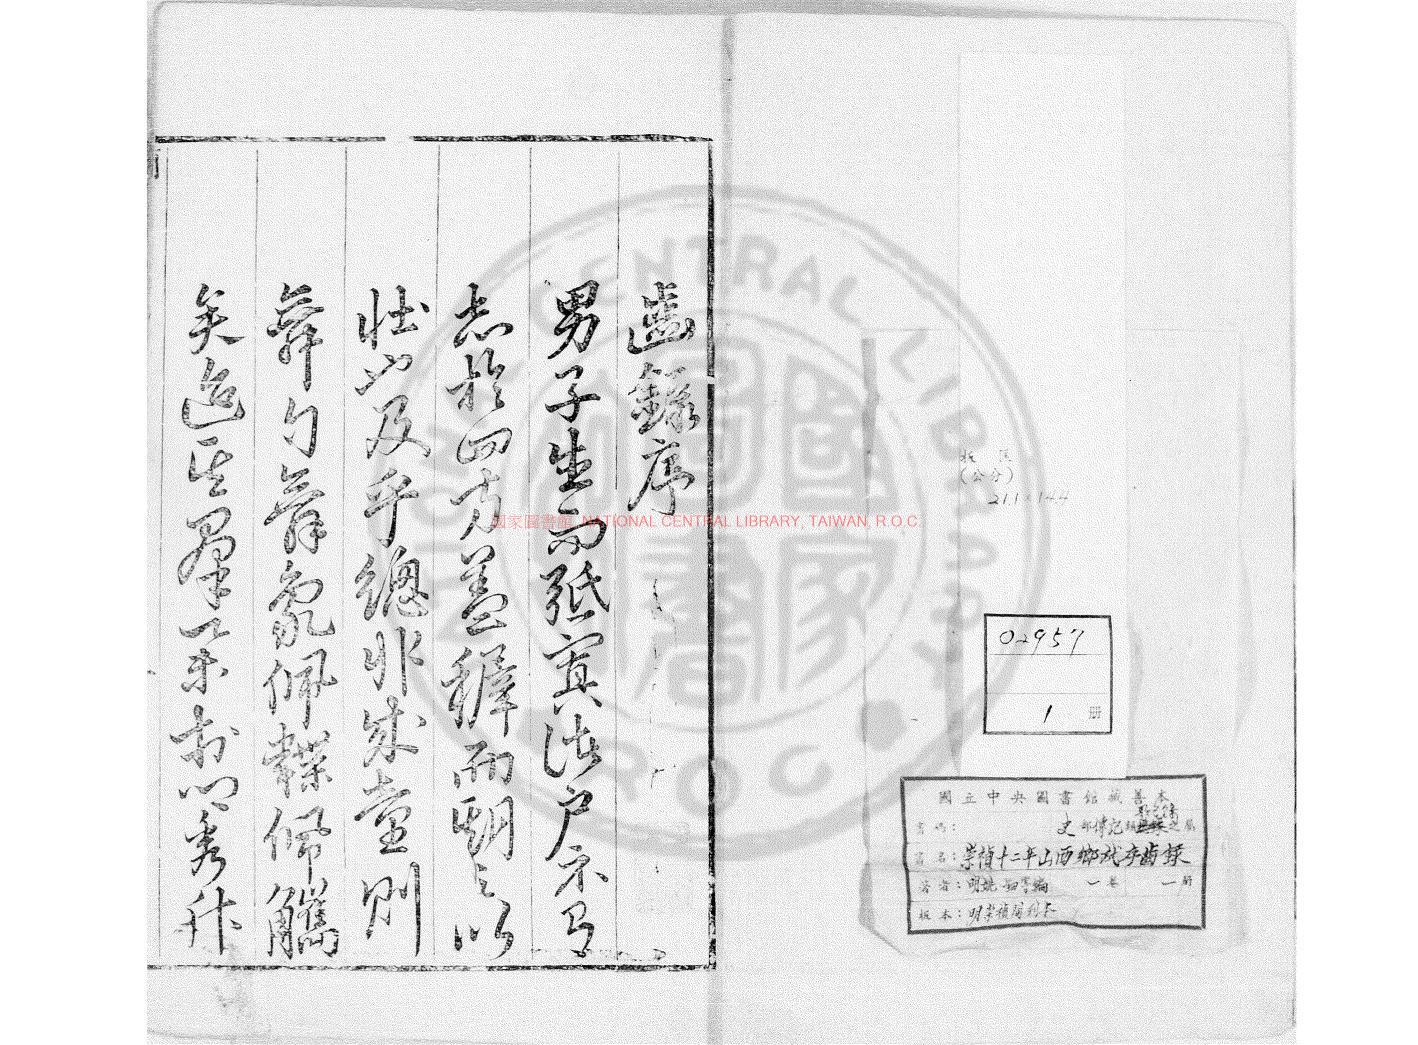 02957
1
冊
國立中央圖書館藏善本
史部傳記類
書名：崇禎十二年山西鄉試序齒錄
著者：明姚 編 一卷 一冊
版本：明崇禎間刊本
(公分)
21.1×14.4
齒錄序
男子生而弧寘諸户示有
志於四方蓋穉而期之以
壯也及乎總丱成童則
舞勺舞象佩韘佩觿
矣迨其羣 於 秀升
國家圖書館 NATIONAL CENTRAL LIBRARY, TAIWAN, R.O.C.
NATIONAL CENTRAL LIBRARY
國家圖書
ROC